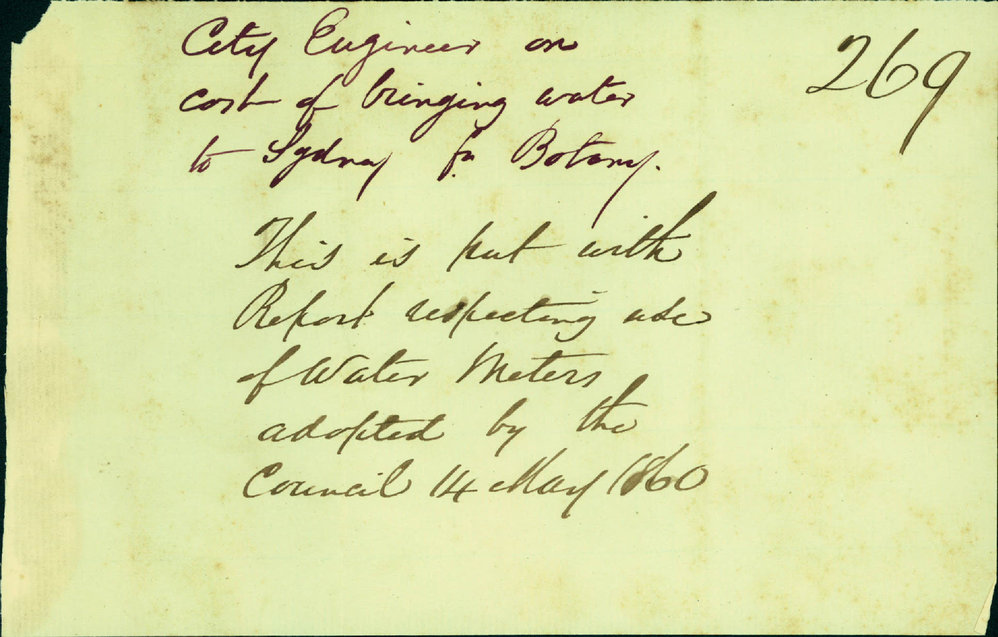 City Engineer on
269
cost of bringing water
to Sydney fm Botany.
This is put with
Report respecting use
of Water Meters
adopted by the
Council 14 May 1860